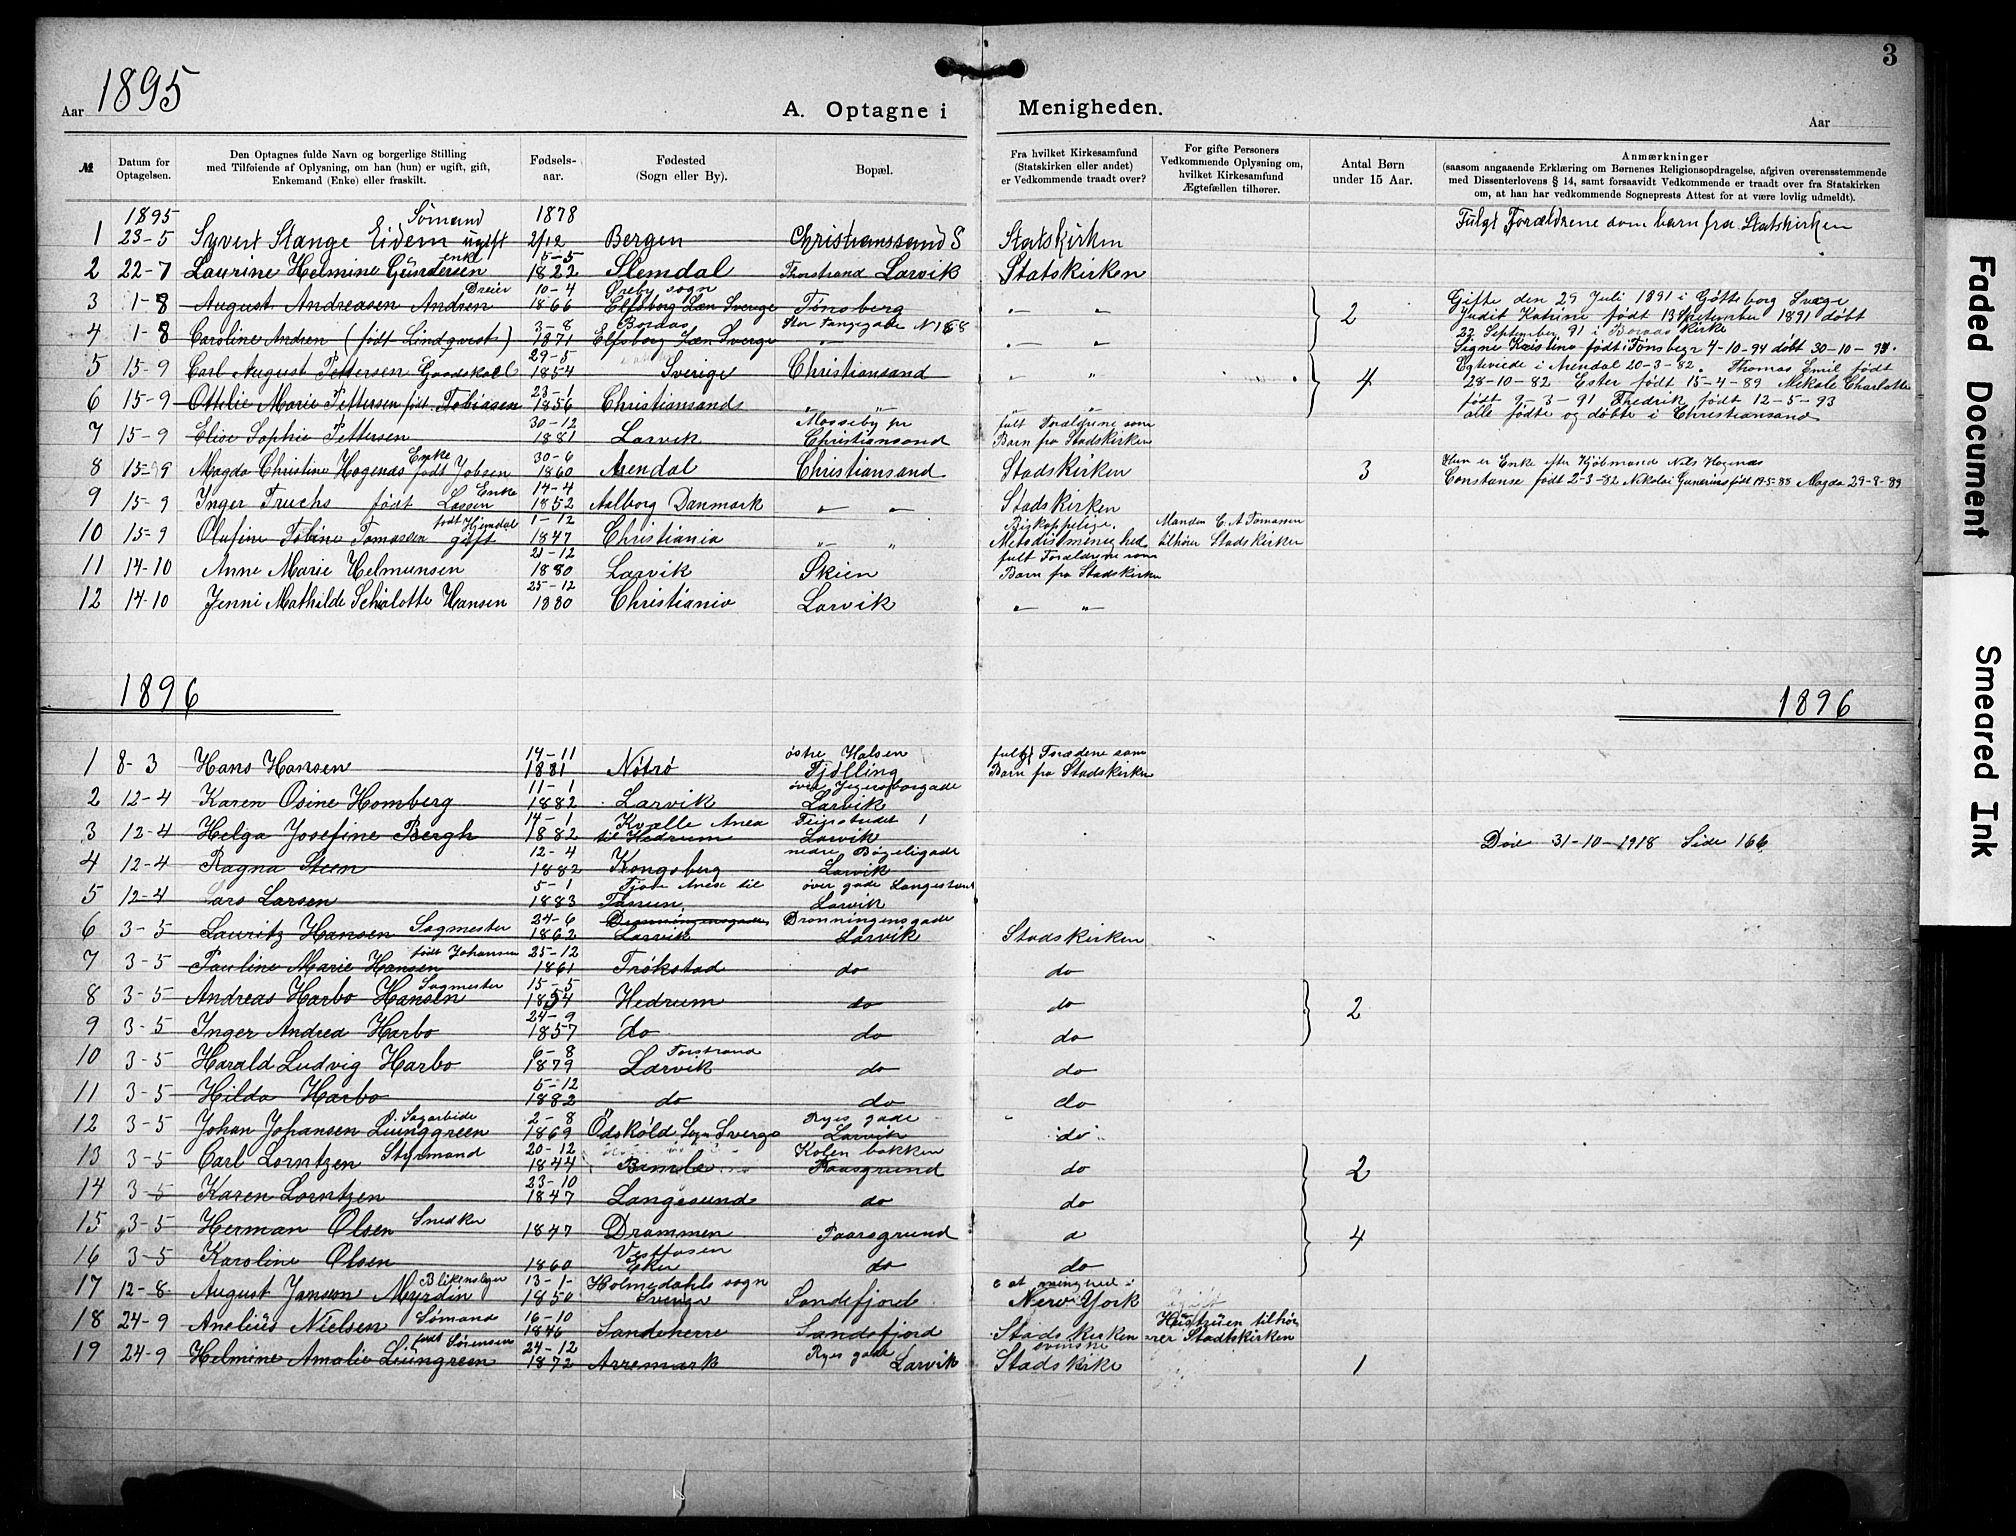 3
Aar 1895
A. Optagne i Menigheden.
Aar
№
Datum for Optagelsen.
Den Optagnes fulde Navn og borgerlige Stilling
med Tilføiende af Oplysning, om han (hun) er ugift, gift,
Enkemand (Enke) eller fraskilt.
Fødsels-
aar.
Fødested
(Sogn eller By).
Bopæl.
Fra hvilket Kirkesamfund
(Statskirken eller andet)
er Vedkommende traadt over?
For gifte Personers
Vedkommende Oplysning om,
hvilket Kirkesamfund
Ægtefællen tilhører.
Antal Børn
under 15 Aar.
Anmærkninger
(saasom angaaende Erklæring om Børnenes Religionsopdragelse, afgiven overensstemmende
med Dissenterlovens § 14, samt forsaavidt Vedkommende er traadt over fra Statskirken
om, at han har vedkommende Sogneprests Attest for at være lovlig udmeldt).
1895 Sømand 1878 Fulgt Forældrene som barn fra Statskirken
1 23-5 Syvert Stange Eidem ugift 2/12 Bergen Christianssand S Statskirken
enke 15-5
2 22-7 Laurine Helmine Gundersen 1822 Slemdal Thorstrand Larvik Statskirken
Dreier 10-4 Øreby sogn
3 1-8 August Andreasen Andren 1866 Elfsborg Læn Sverige Tønsberg " " 2 Gifte den 29 Juli 1891 i Gøtteborg
Judit Katrine født 13 September 1891 døbt
3-8 Boraas Stor Fangegade N 168
4 1-8 Caroline Andren (født Lindqvist) 1871 Elfsborg Læn Sverge " " 22 September 91 i Boraas Kirke
Signe Kristine født i Tønsberg 4-10-94 døbt 30-10-94.
29-5
5 15-9 Carl August Pettersen 1854 Sverige Christiansand " " 4 Egteviede i Arendal 20-3-82. Thomas Emil født
28-10-82 Ester født 15-4-89 Mekale Charlotte
23-1
6 15-9 Ottilie Marie Pettersen født Tobiasen 1856 Christiansands " " " " født 9-3-91 Fredrik født 12-5-93
alle fødte og døbte i Christiansand
30-12 Mosseby pr fult Forældrene som
7 15-9 Elise Sophie Pettersen 1881 Larvik Christiansand Barn fra Stadskirken
Enke 30-6
8 15-9 Magda Christine Hagenæs født Jobsen 1860 Arendal Christiansand Stadskirken 3 Hun er Enke efter Kjøbmand Nils Hagenæs
Constanse født 2-3-82 Nikolai Gunerius født 19-5-88 Magda 29-8-89
Enke 14-4
9 15-9 Inger Fruchs født Lassen 1852 Aalborg Danmark " " Stadskirken
født Hemdal 1-12 Biskoppelige. Manden C. A Tomassen
10 15-9 Olufine Tobine Tomassen gift 1847 Christiania " " Metodistmenighed tilhører Stadskirken
21-12 fult Forældrene som
11 14-10 Anne Marie Helmunsen 1880 Larvik Skien Barn fra Stadskirken
25-12
12 14-10 Jenni Mathilde Schialotte Hansen 1880 Christiania Larvik " "
1896 1896
14-11 østre Halsen fulgt Forædene som
1 8-3 Hans Hansen 1881 Nøtrø Tjølling Barn fra Stadskirken
11-1
2 12-4 Karen Osine Homberg 1882 Larvik Larvik
14-1 Kvælle Anex 1
3 12-4 Helga Josefine Bergh 1882 til Hedrum Larvik Død 31-10-1918 Side 166
12-4 nedre Bøgeligade
4 12-4 Ragna Steen 1882 Kongsberg Larvik
5-1 Tjøte Anex til øver gade
5 12-4 Lars Larsen 1883 Larvik
24-6 Dronningensgade Dronningensgade
6 3-5 Lauritz Hansen Sagmester 1862 Larvik Larvik Stadskirken
født Johansen 25-12
7 3-5 Pauline Marie Hansen 1861 Trøkstad do do
Sagmester 15-5
8 3-5 Andreas Harbo Hansen 1854 Hedrum do do 2
24-9
9 3-5 Inger Andrea Harbo 1857 do do do
6-8 Torstrand
10 3-5 Harald Ludvig Harbo 1879 Larvik do do
5-12
11 3-5 Hilda Harbo 1882 do do do
Sagarbide 2-8 Ryes gade
12 3-5 Johan Johansen Liunggreen 1869 Ödskøld Sogn Sverge Larvik do
20-12 Kolen bakken
13 3-5 Carl Lorntzen Styrmand 1844 Bamle Paasgrund do 2
23-10
14 3-5 Karen Lorntzen 1847 Langesund do do
15 3-5 Herman Olsen Snedker 1847 Drammen Paarsgrund 4
Vestfosen
16 3-5 Karoline Olsen 1860 Eker do do
Blikenslager 13-1 Holmedahls sogn
17 12-8 August Janson Myrdin 1850 Sverige Sandefjord New York
Sømand 16-10 Hustruen tilhø-
18 24-9 Anelius Nielsen 1846 Sandeherre Sandefjord Stadskirken rer Stadtskirken
født Sørensen 24-12 Ryes gade svenske
19 24-9 Helmine Amalie Liungreen 1872 Arremark Larvik Stadskirke 1
Faded Document
Smeared Ink